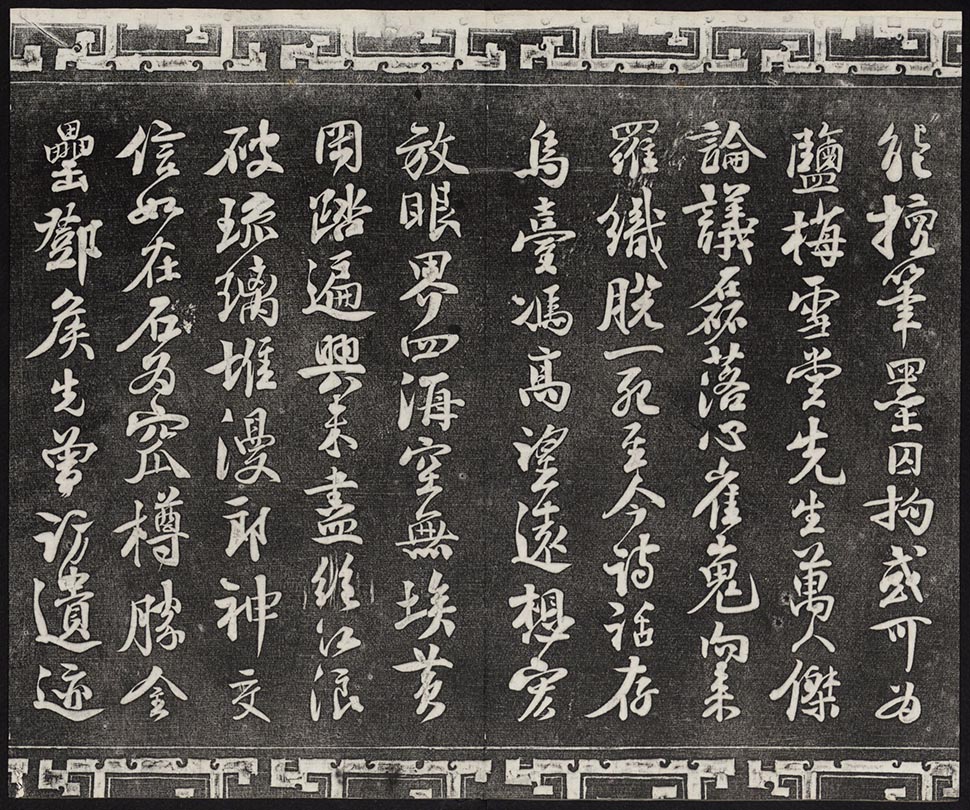 能擅筆墨囚拘或可為
鹽梅雪堂先生萬人傑
論議磊落心崔嵬向來
羅織脫一死至今詩話存
烏臺馮高望遠想宏
放眼界四海空無埃黃
岡踏遍興未盡絕江浪
破琉璃堆漫郎神交
信如在石為窊樽勝金
罍鄧侯先曾訪遺迹